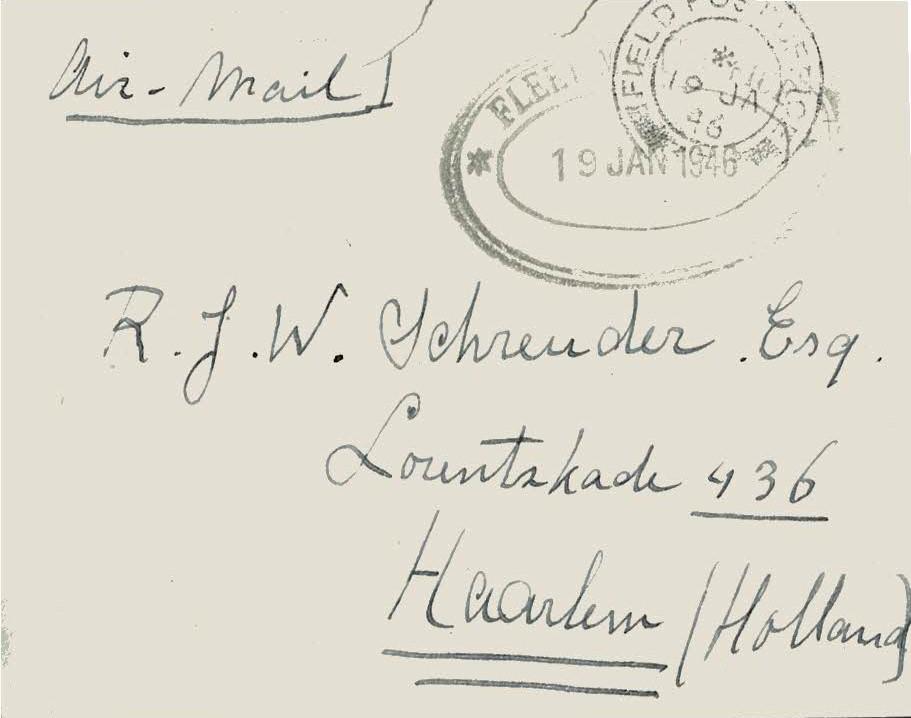 Air-Mail
FIELD POST OFFICE
19 JA
46
FLEET
19 JAN 1946
R. J. W. Schreuder. Esq.
Lorentzkade 436
Haarlem (Holland)